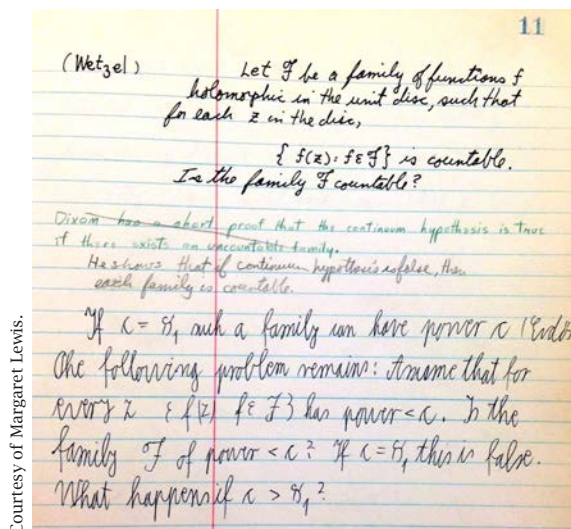 11
(Wetzel)
Let F be a family of functions f
holomorphic in the unit disc, such that
for each z in the disc,
{ f(z): f ε F } is countable.
Is the family F countable?
Dixon has a short proof that the continuum hypothesis is true
if there exists an uncountable family.
He shows that if continuum hypothesis is false, then
each family is countable.
If c = ℵ₁ such a family can have power c (Erdős
One following problem remains: Assume that for
every z { f(z) f ε F } has power < c. Is the
family F of power < c? If c = ℵ₁ this is false.
What happens if c > ℵ₁?
Courtesy of Margaret Lewis.